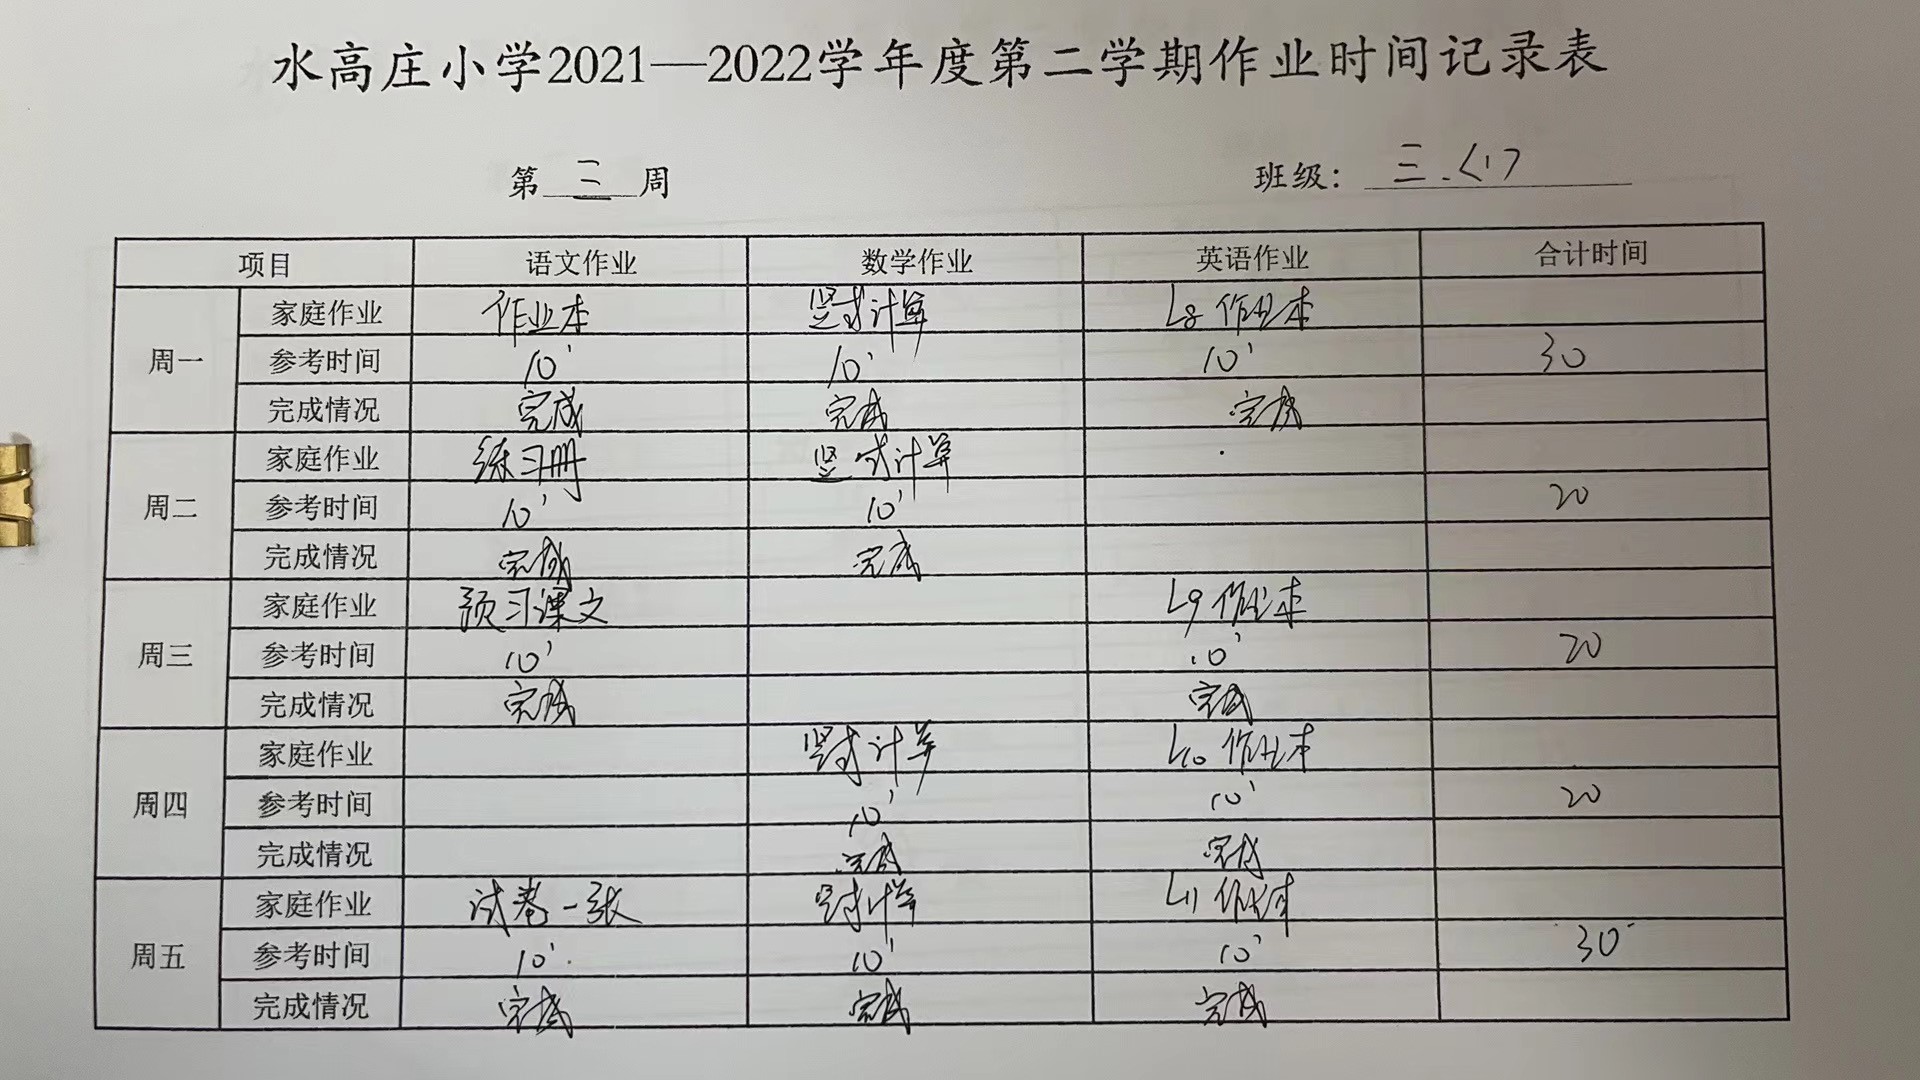 水高庄小学2021—2022学年度第二学期作业时间记录表
第三周 班级：三.(1)
项目 语文作业 数学作业 英语作业 合计时间
周一
家庭作业 作业本 竖式计算 L8 作业本
参考时间 10' 10' 10' 30
完成情况 完成 完成 完成
周二
家庭作业 练习册 竖式计算
参考时间 10' 10' 20
完成情况 完成 完成
周三
家庭作业 预习课文 L9 作业本
参考时间 10' 10' 20
完成情况 完成 完成
周四
家庭作业 竖式计算 L10 作业本
参考时间 10' 10' 20
完成情况 完成 完成
周五
家庭作业 试卷一张 竖式计算 L11 作业本
参考时间 10' 10' 10' 30
完成情况 完成 完成 完成